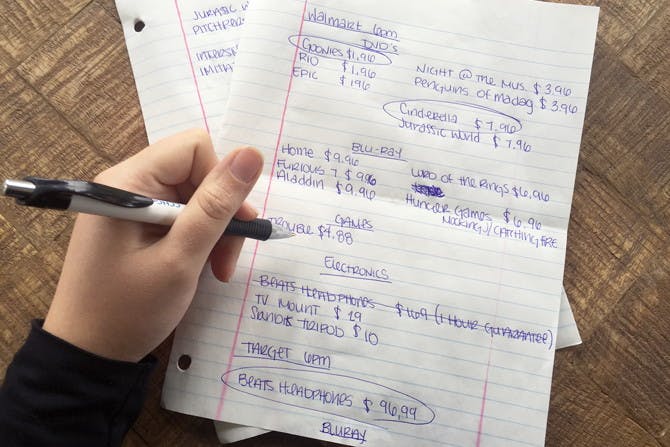 JURASSIC W
PITCHPER
INTERST
IMITA
Walmart 6pm
DVD's
Goonies $1.96
RIO $1.96
EPIC $1.96
NIGHT @ THE MUS. $3.96
PENGUINS OF MADAG $3.96
Cinderella $7.96
JURASSIC WORLD $7.96
BLU-RAY
Home $9.96
FURIOUS 7 $9.96
Aladdin $9.96
LORD OF THE RINGS $6.96
HUNGER GAMES $6.96
MOCKINGJ/CATCHING FIRE
GAMES
TROUBLE $7.88
ELECTRONICS
BEATS HEADPHONES $169 (1 HOUR GUARANTEE)
TV MOUNT $19
TRIPOD $10
TARGET 6PM
BEATS HEADPHONES $96.99
BLURAY